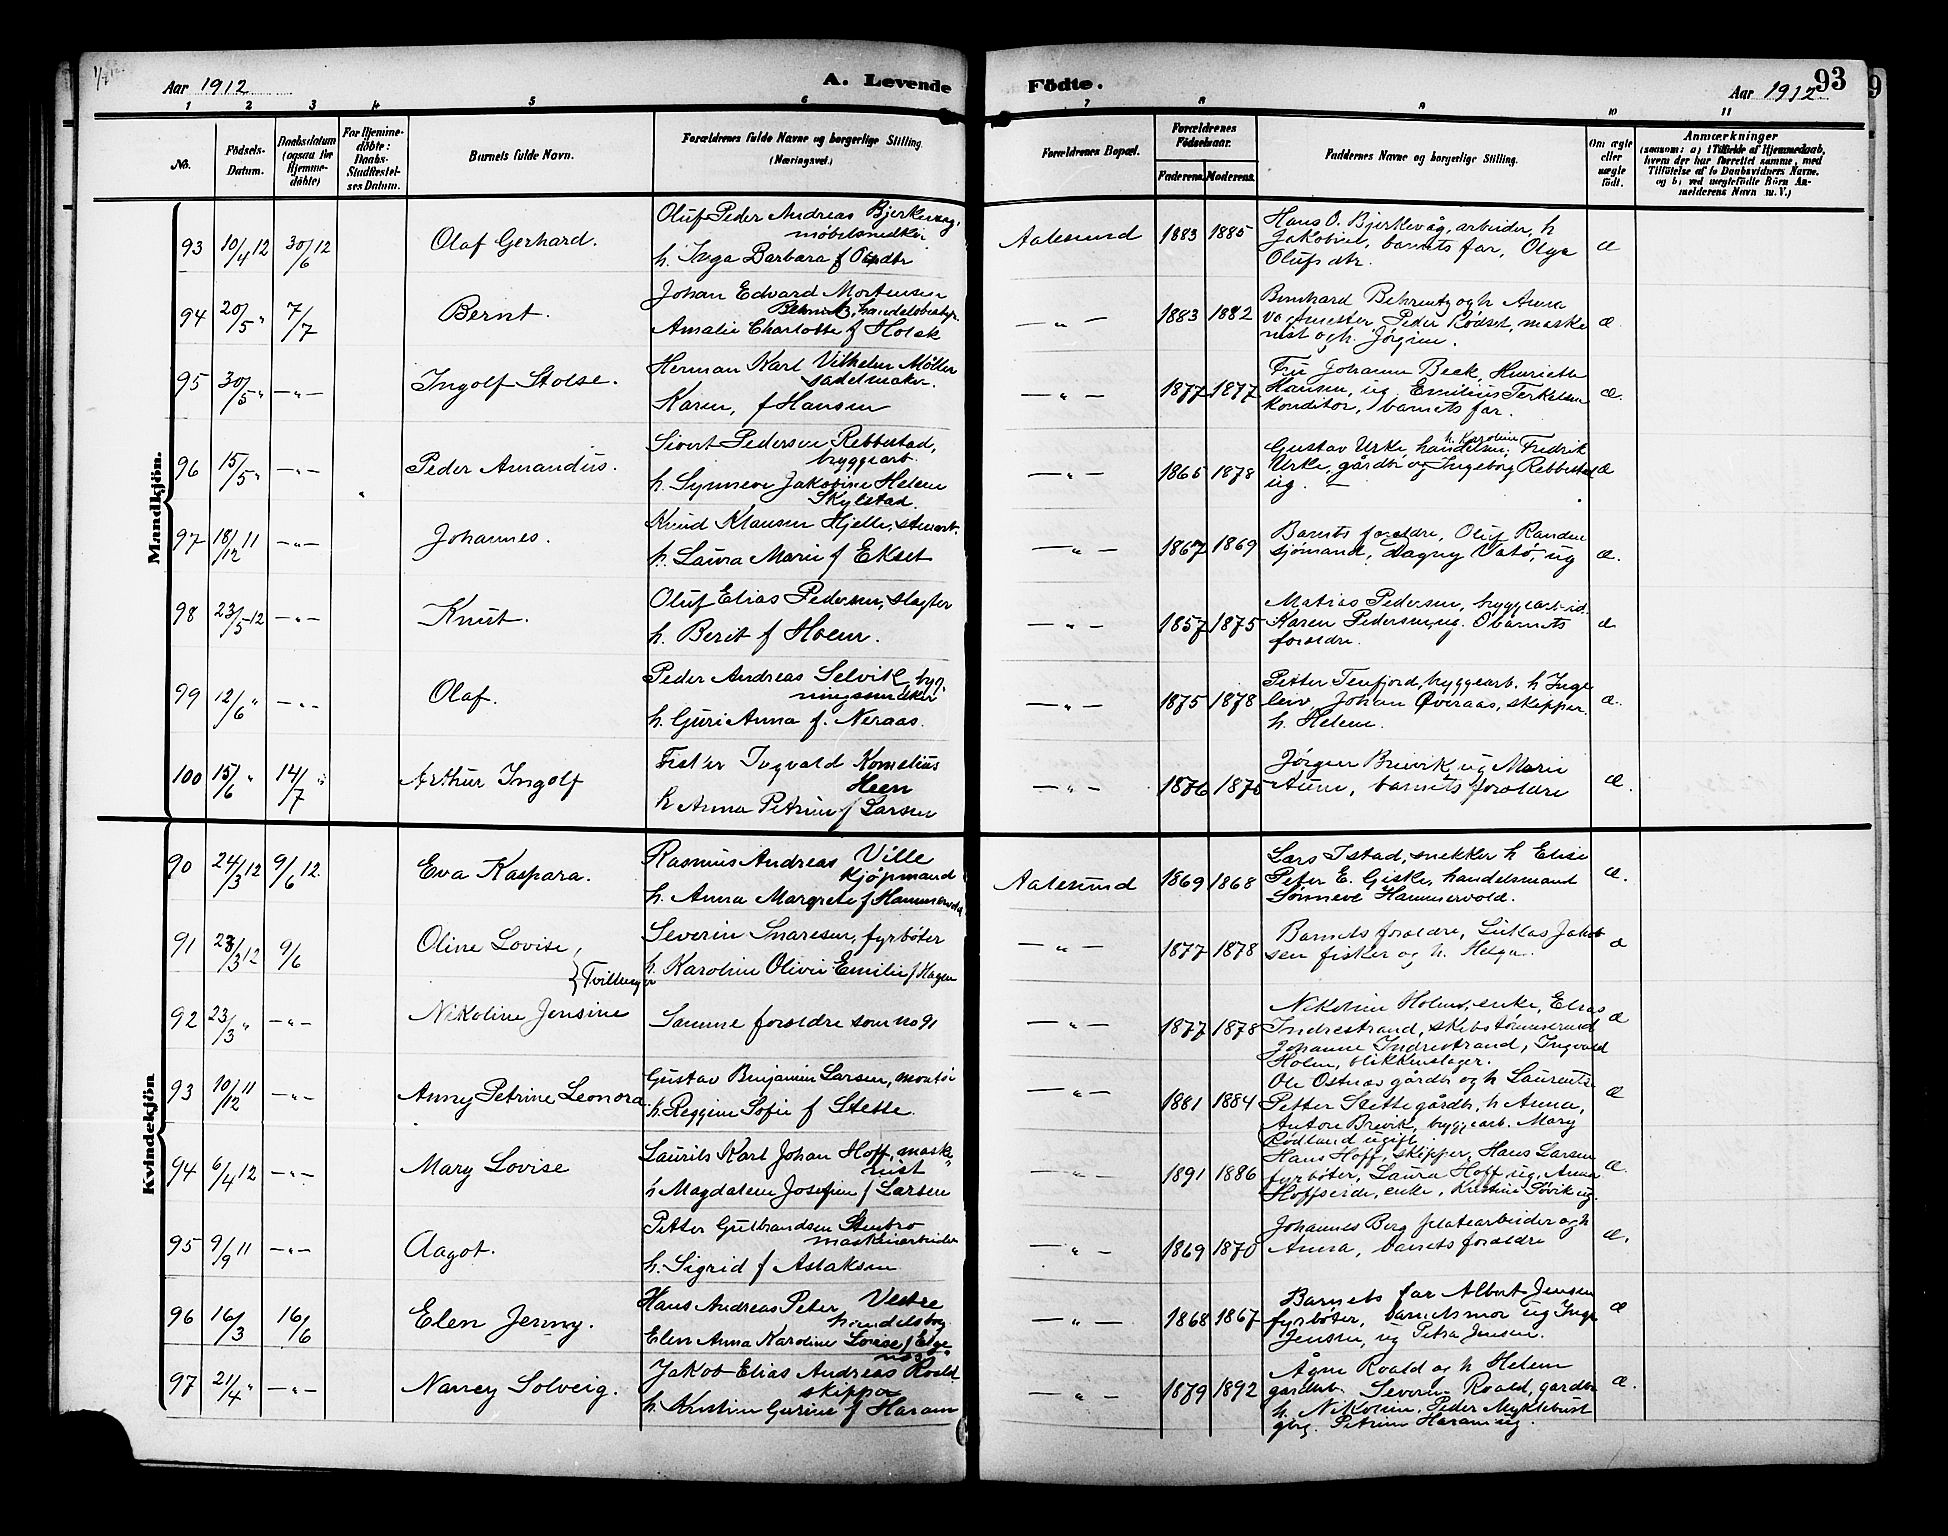 Aar 1912
A. Levende Födte.
Aar 1912
93
1 2 3 4 5 6 7 8 9 10 11
No.
Födsels-Datum.
Daabsdatum (ogsaa for Hjemme-döbte)
For Hjemme-döbte: Daabs-Stadfæstel-ses Datum.
Barnets fulde Navn.
Forældrenes fulde Navne og borgerlige Stilling (Næringsvei.)
Forældrenes Bopæl.
Forældrenes Födselsaar.
Faderens. Moderens.
Faddernes Navne og borgerlige Stilling.
Om ægte eller uægte födt.
Anmærkninger
(saasom: a) i Tilfælde af Hjemmedaab, hvem der har forrettet samme, med Tilföielse af to Daabsvidners Navne. og b) ved uægtefödte Börn An-melderens Navn m. V.)
Mandkjön.
93 10/4 12 30/6 12 Olaf Gerhard.
Oluf Peder Andreas Bjerkevaag,
møbelsnedker
h. Inga Barbara f
Aalesund 1883 1885
Hans O. Bjerkevåg, arbeider, h
Jakobine, barnets far, Olga
Olufsdtr. æ
94 20/5 " 7/7 Bernt.
Johan Edvard Mortensen
Behrentz, handelsbestyr.
Amalie Charlotte f Holck
— " — 1883 1882
Bernhard Behrentz og h Anna
vagtmester, Peder Rødset, maski
nist og h. Jørgine. æ.
95 30/5 " — " — Ingolf Stolse.
Herman Karl Vilhelm Møller
sadelmaker.
Karen, f Hansen
— " — 1877 1877
Fru Johanne Beck, Henriette
Hansen, ug, Emilius Terkelsen
konditor, barnets far. æ.
96 15/5 " — " — Peder Amandus.
Sivert Pedersen Rebbestad,
byggearb.
h. Synneve Jakobine Helene
Skylstad.
— " — 1865 1878
Gustav Urke, handelsm, h. Karoline, Fredrik
Urke, gårdbr og Ingeborg Rebbestad
ug. — æ
97 18/12 11 — " — Johannes.
Knud Klausen Hjelle, stuert.
h. Laura Marie f Ekset
— " — 1867 1869
Barnets forældre, Oluf Randen
sjømand, Dagny Vatø, ug æ.
98 23/5 12 — " — Knut.
Oluf Elias Pedersen, slagter
h. Berit f Hoem.
— " — 1857 1875
Matias Pedersen, byggearb. id.
Karen Pedersen, ug. O barnets
forældre. æ
99 12/6 " — " — Olaf.
Peder Andreas Selvik, byg-
ningssnedker
h. Guri Anna f. Neraas.
— " — 1875 1878
Petter Tenfjord, byggearb. h Inge
leiv, Johan Øveraas, skipper
h. Helene. æ.
100 15/6 " 14/7 " Arthur Ingolf
Fisker Ingvald Kornelius
Heen
h Anna Petrine f Larsen
— " — 1876
Jørgen Brevik, ug Marie
Aune, barnets forældre æ.
Kvindekjön
90 24/3 12 9/6 12. Eva Kaspara.
Rasmus Andreas Ville
kjøpmand
h. Anna Margrete f Hammervold
Aalesund 1869 1868
Lars Istad, snekker h Elise
Peter E. Giske, handelsmand
Sønneve Hammervold. æ.
91 23/3 12 9/6 Oline Lovise,
{Tvillinger
Severin Snaresen, fyrbøter
h. Karoline Olivie Emilie f Hagen
— " — 1877 1878
Barnets forældre, Lukas Jakob
sen fisker og h. Helga. æ
92 23/3 " — " — Nikoline Jensine
Samme forældre som no 91
— " — 1877 1878
Nikoline Holen, enke, Elias
Indrestrand, skibstømmermd
Johanne Indrestrand, Ingvald
Holen, blikkenslager. æ
93 10/12 11 — " — Anny Petrine Leonora.
Gustav Benjamin Larsen, montør
h. Reggine Sofie f Stette.
— " — 1881 1884
Ole Ostnæs gårdbr og h Laurentse
Petter Stette gårdbr, h Anna,
Anton Brevik, byggearb. Mary
Rødland ugift. æ
94 6/4 12 — " — Mary Lovise
Laurits Karl Johan Hoff, maski-
nist
h Magdalene Josefine f Larsen
— " — 1891 1886
Hans Hoff, skipper, Hans Larsen
fyrbøter, Laura Hoff ug, Anna
Hoffseide, enke, Kristine Søvik ug. æ.
95 9/9 11 — " — Aagot.
Petter Gulbrandsen Stenbro
maskinarbeider
h. Sigrid f Aslaksen
— " — 1869 1870
Johannes Berg platearbeider og h
Anna, barnets forældre æ.
96 16/3 16/6 Elen Jenny.
Hans Andreas Peter Vestre
handelsbog.
Elen Anna Karoline Lovise f
— " — 1868 1867
Barnets far Albert Jensen
fyrbøter, barnets mor ug Inge
Jensen, ug Petra Jensen. æ
97 21/4 " — " — Nancy Solveig.
Jakob Elias Andreas Roald
skipper
h. Kristine Gurine f Haram
— " — 1879 1892
Ågne Roald og h Helene
gardbr. Severin Roald, gardbr
h. Nikoline, Peder Myklebust
gbrg. Petrine Haram ug. æ.